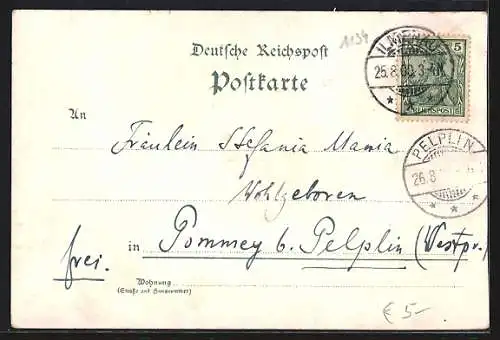 1134
Deutsche Reichspost
Postkarte
5
25.8.00.3-4N.
REICHSPOST
PELPLIN
26.8
An
Fräulein Stefania Mania
Wohlgeboren
in Pommey b. Pelplin (Westpr.)
frei.
Wohnung
(Straße und Hausnummer)
€ 5-